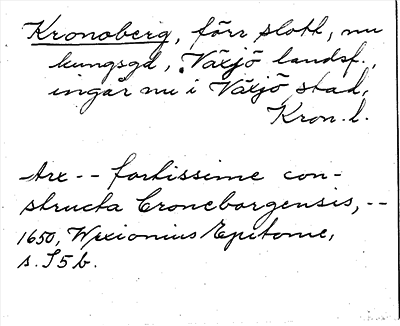 Kronoberg, förr slott, nu
kungsgd, Växjö landsf.,
ingår nu i Växjö stad,
Kron. l.
Arx -- fortissime con-
structa Croneborgensis, --
1650, Wexionius Epitome,
s. I 5 b.